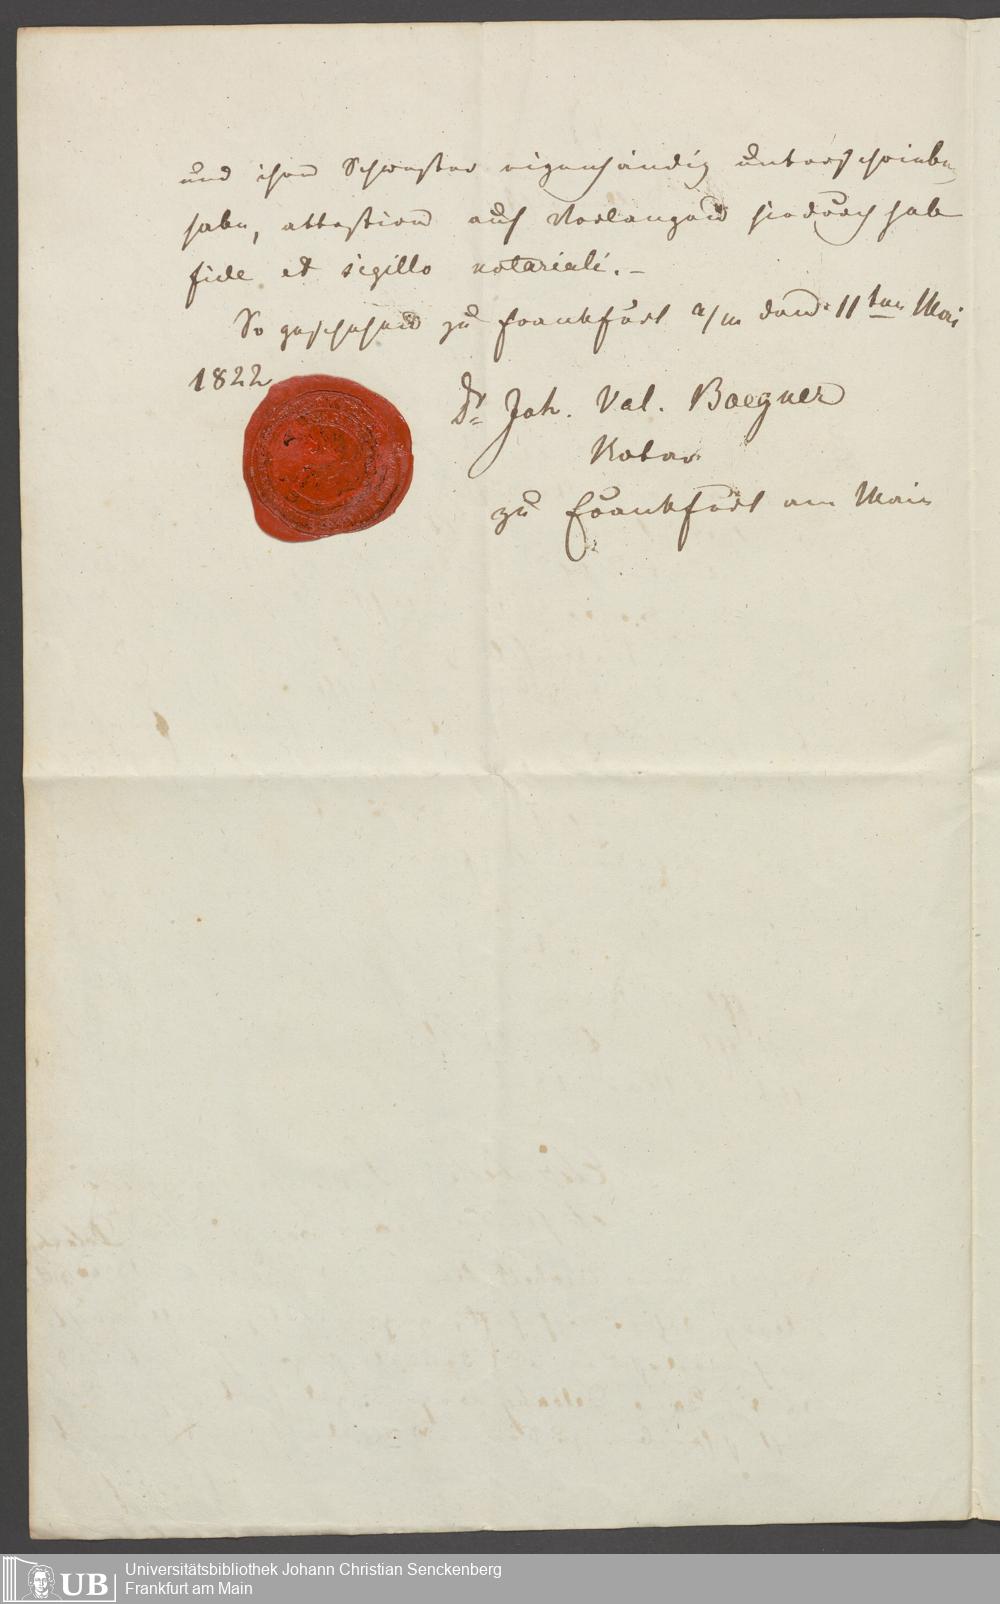 und ihrer Schwester eigenhändig unterschrieben
habe, attestire auf Verlangen hierdurch sub
fide et sigillo notariali. –
So geschehen zu Frankfurt a/m den 11ten Mai
1822
Dr Joh. Val. Boegner
Notar
zu Frankfurt am Main
UB
Universitätsbibliothek Johann Christian Senckenberg
Frankfurt am Main